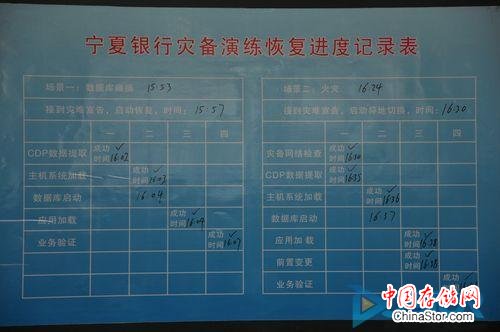 宁夏银行灾备演练恢复进度记录表
场景一：数据库 15:53
接到灾难宣告，启动恢复，时间： 15:57
一 二 三 四
CDP数据提取 成功 ✓
时间 16:02
主机系统加载 成功 ✓
时间 16:03
数据库启动 16:04
应用加载 成功 ✓
时间
业务验证 成功 ✓
时间
场景二：火灾 16:24
接到灾难宣告，启动异地切换，时间： 16:30
一 二 三 四
灾备网络检查 成功 ✓
时间
CDP数据提取 成功 ✓
时间 16:35
主机系统加载 成功 ✓
时间 16:36
数据库启动 16:37
应用加载 成功 ✓
时间 16:38
前置变更 成功 ✓
时间 16:38
业务验证 成功
中国存储网
ChinaStor.com